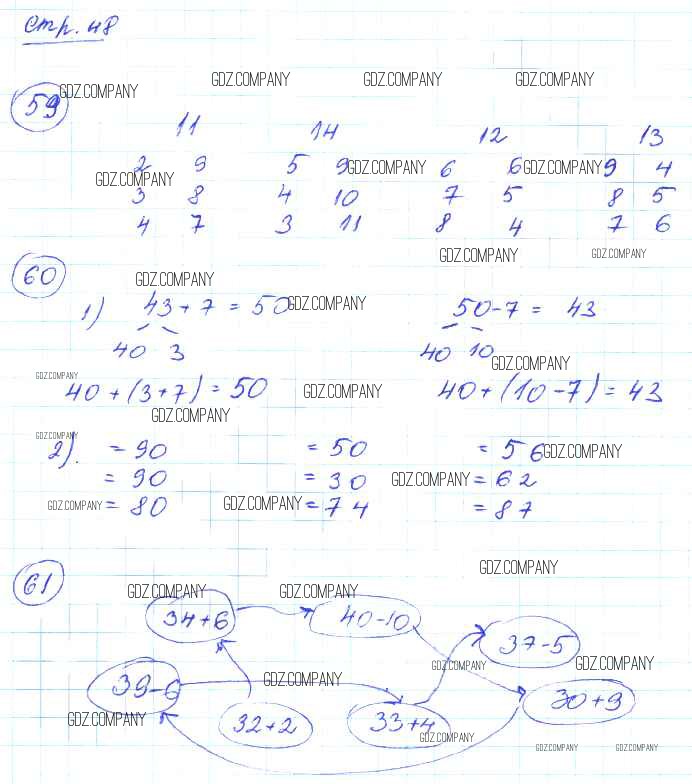 Стр. 48
GDZ.COMPANY GDZ.COMPANY GDZ.COMPANY GDZ.COMPANY
59
11 14 12 13
2 9 5 9 GDZ.COMPANY 6 6 GDZ.COMPANY 9 4
GDZ.COMPANY
3 8 4 10 7 5 8 5
4 7 3 11 8 4 7 6
GDZ.COMPANY GDZ.COMPANY
60
GDZ.COMPANY
1) 43+7=50 GDZ.COMPANY 50-7=43
40 3 40 10
GDZ.COMPANY
GDZ.COMPANY
40+(3+7)=50 GDZ.COMPANY 40+(10-7)=43
GDZ.COMPANY
GDZ.COMPANY
2). =90 =50 =56 GDZ.COMPANY
=90 =30 GDZ.COMPANY =62
GDZ.COMPANY =80 GDZ.COMPANY =74 =87
GDZ.COMPANY
61
GDZ.COMPANY GDZ.COMPANY
34+6 40-10
37-5
GDZ.COMPANY GDZ.COMPANY
39-6 GDZ.COMPANY 30+9
GDZ.COMPANY 32+2 33+4
GDZ.COMPANY
GDZ.COMPANY GDZ.COMPANY